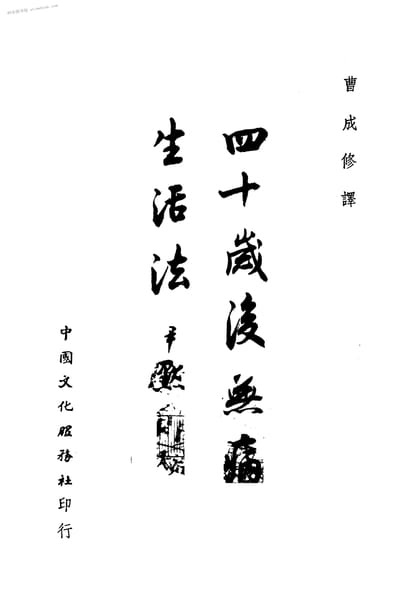 曹成修譯
四十歲後無病
生活法
尹默
中國文化服務社印行